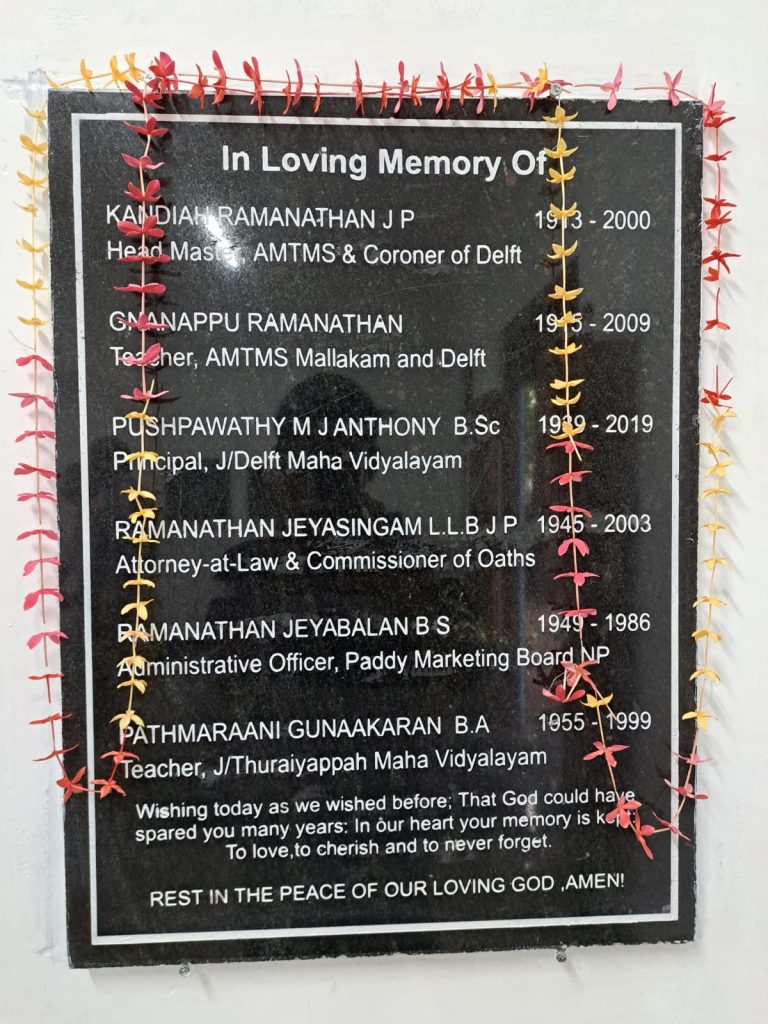 In Loving Memory Of
KANDIAH RAMANATHAN J P 1913 - 2000
Head Master, AMTMS & Coroner of Delft
GNANAPPU RAMANATHAN 1915 - 2009
Teacher, AMTMS Mallakam and Delft
PUSHPAWATHY M J ANTHONY B.Sc 1939 - 2019
Principal, J/Delft Maha Vidyalayam
RAMANATHAN JEYASINGAM L.L.B J P 1945 - 2003
Attorney-at-Law & Commissioner of Oaths
RAMANATHAN JEYABALAN B S 1949 - 1986
Administrative Officer, Paddy Marketing Board NP
PATHMARAANI GUNAAKARAN B.A 1955 - 1999
Teacher, J/Thuraiyappah Maha Vidyalayam
Wishing today as we wished before; That God could have
spared you many years: In our heart your memory is kept:
To love,to cherish and to never forget.
REST IN THE PEACE OF OUR LOVING GOD ,AMEN!